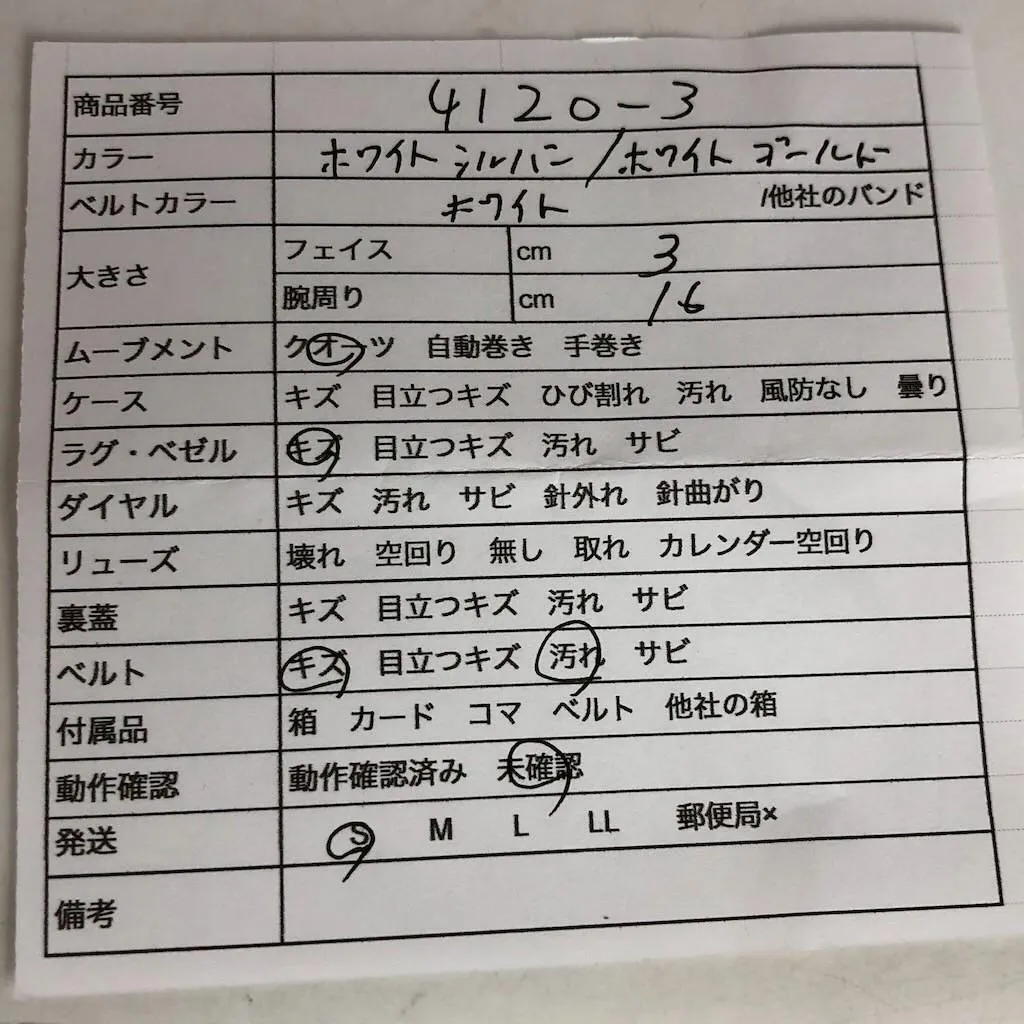 商品番号 4120-3
カラー ホワイト シルバー/ホワイト ゴールド
ベルトカラー ホワイト /他社のバンド
大きさ フェイス cm 3
腕周り cm 16
ムーブメント クオーツ 自動巻き 手巻き
ケース キズ 目立つキズ ひび割れ 汚れ 風防なし 曇り
ラグ・ベゼル キズ 目立つキズ 汚れ サビ
ダイヤル キズ 汚れ サビ 針外れ 針曲がり
リューズ 壊れ 空回り 無し 取れ カレンダー空回り
裏蓋 キズ 目立つキズ 汚れ サビ
ベルト キズ 目立つキズ 汚れ サビ
付属品 箱 カード コマ ベルト 他社の箱
動作確認 動作確認済み 未確認
発送 S M L LL 郵便局×
備考